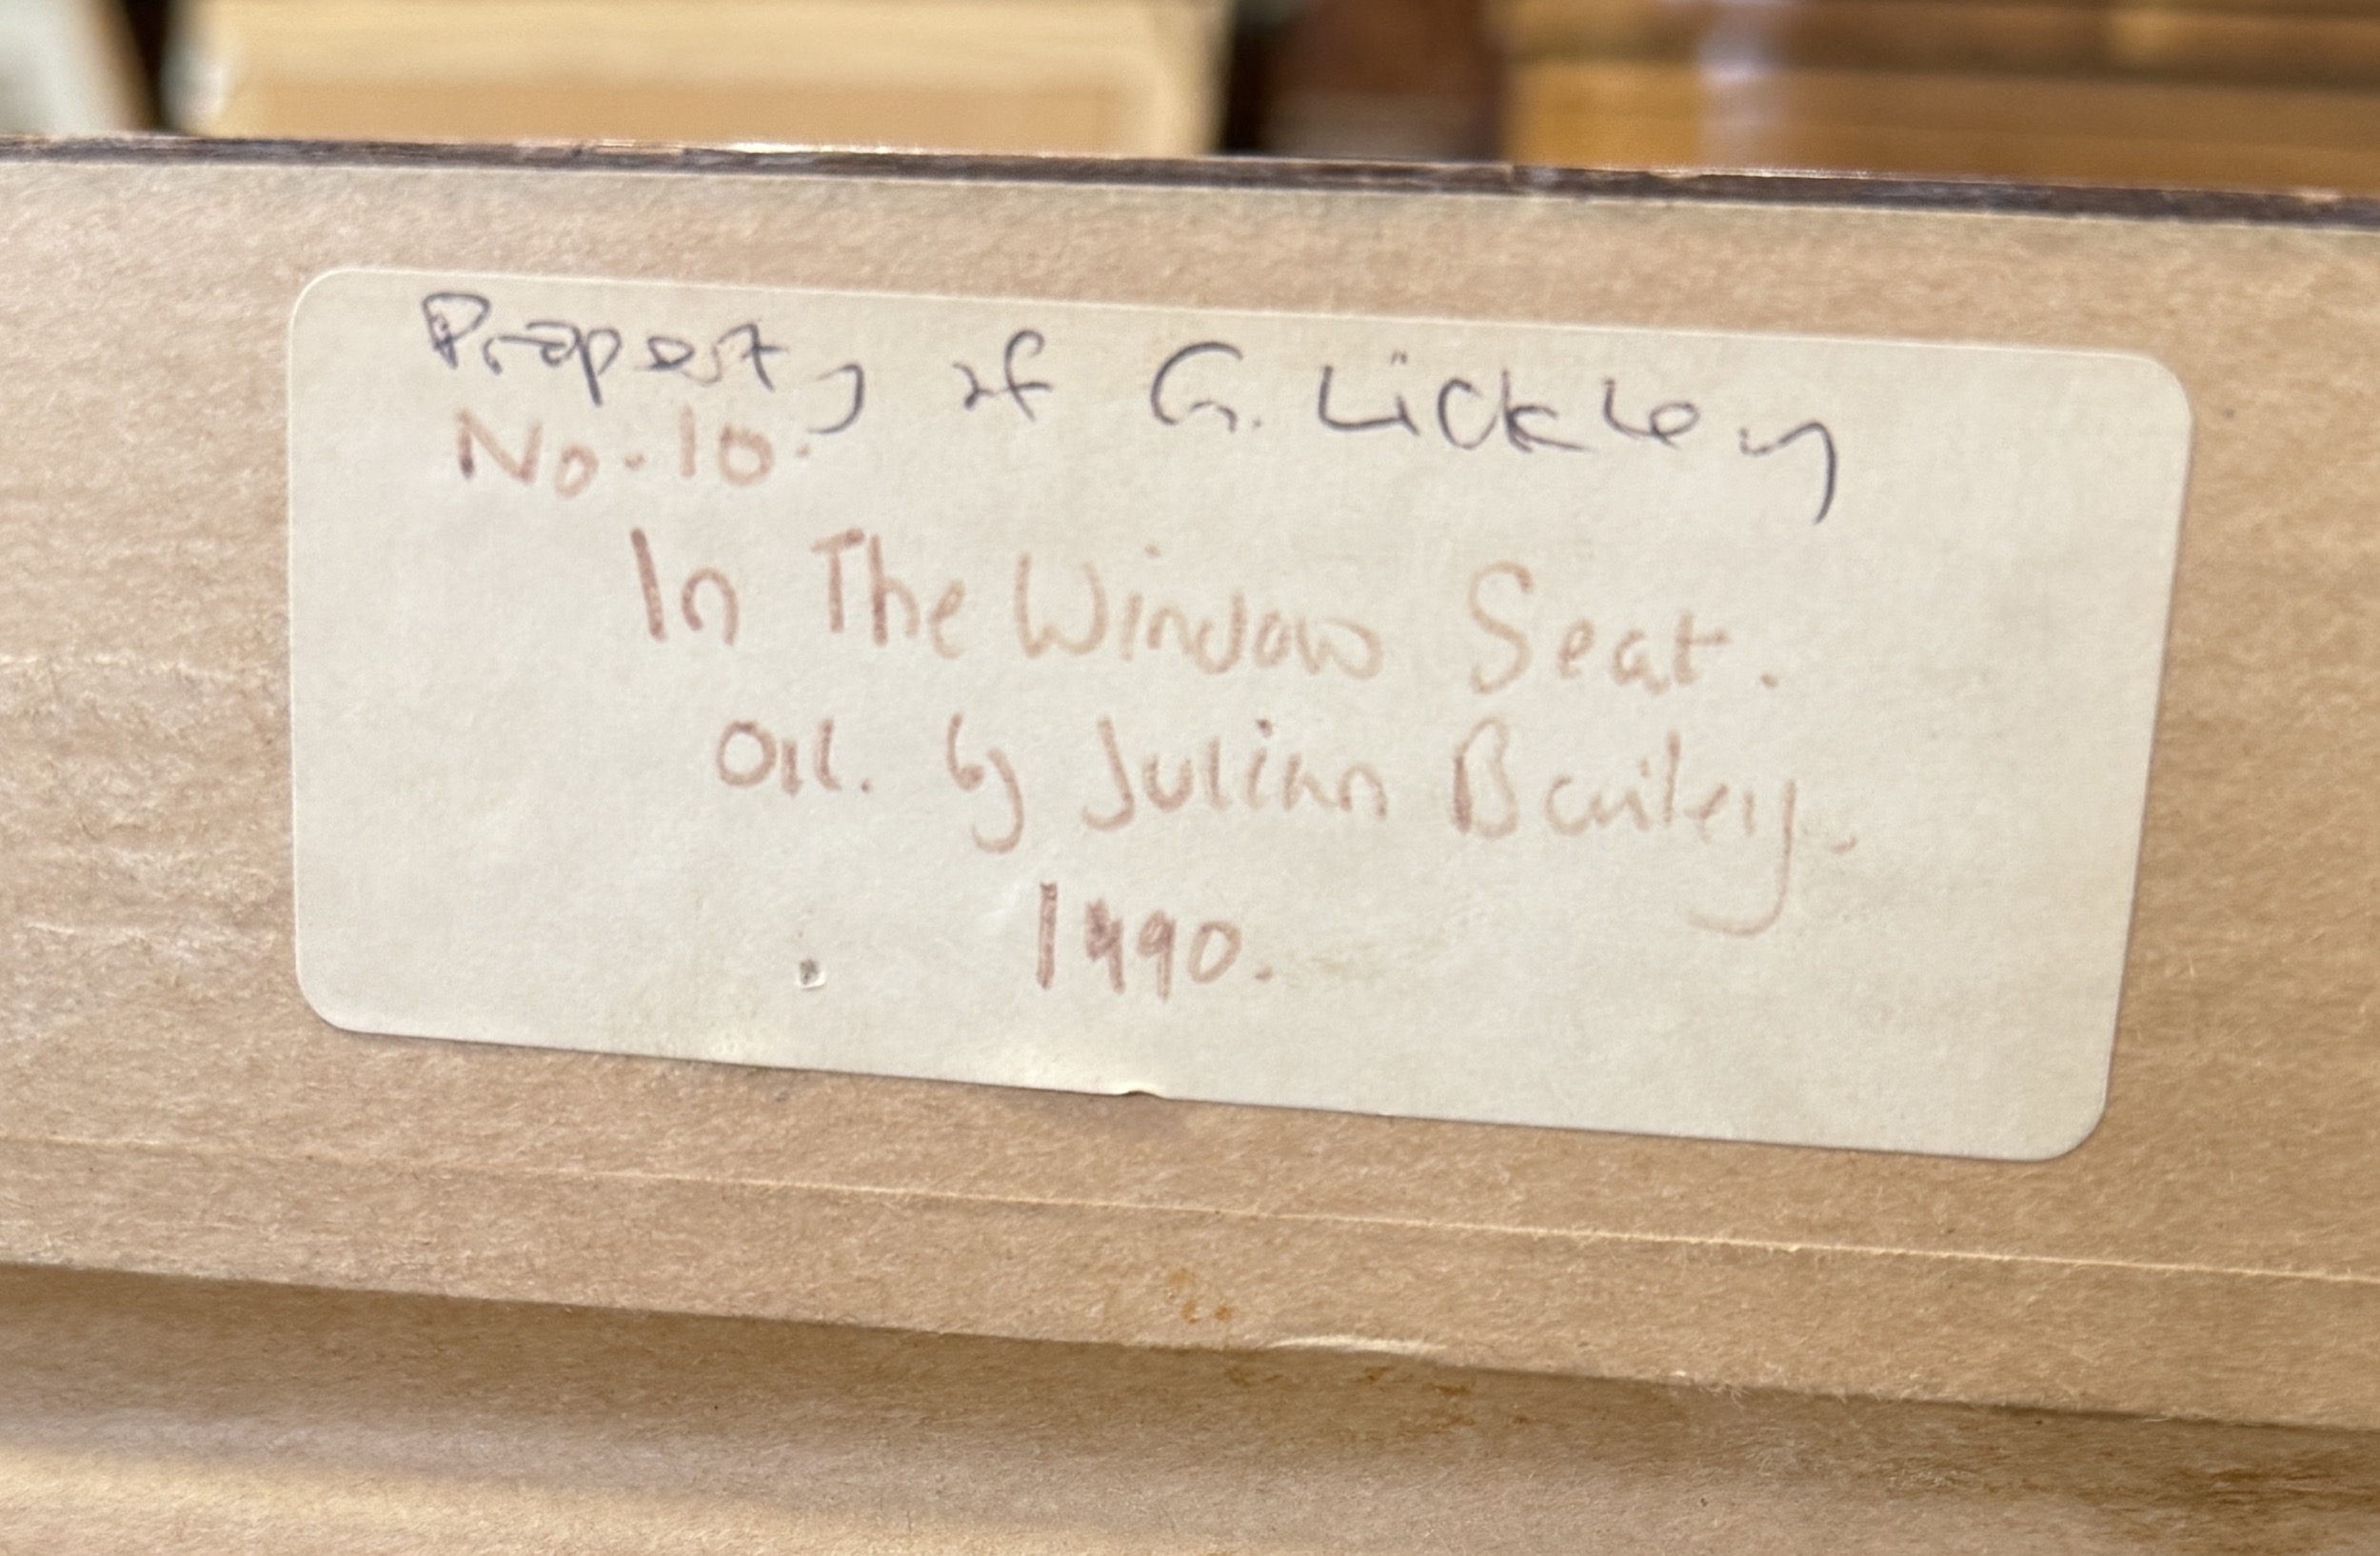 Property of G. Lickley
No. 10.
In The Window Seat.
Oil. by Julian Bailey.
1990.